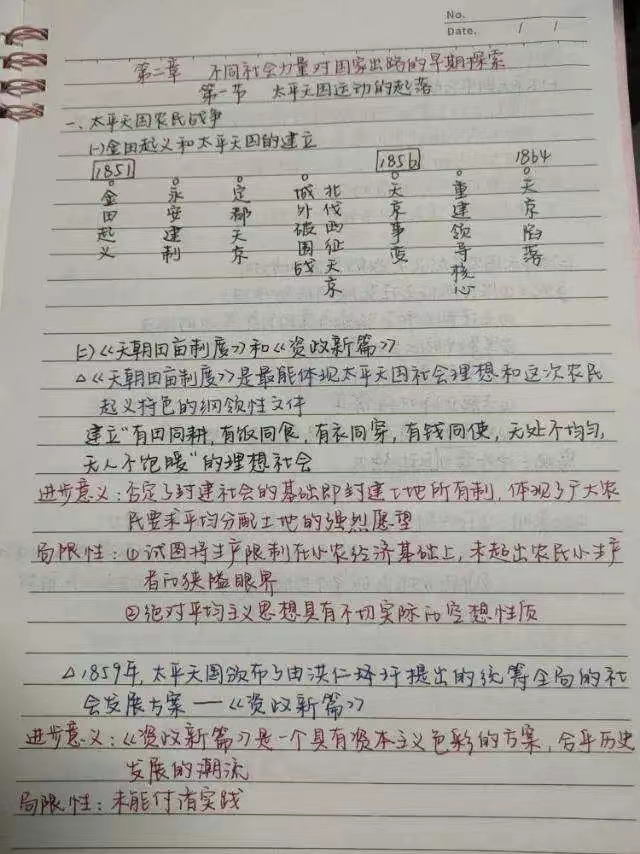 No.
Date. / /
第二章 不同社会力量对国家出路的早期探索
第一节 太平天国运动的起落
一、太平天国农民战争
(一)金田起义和太平天国的建立
1851 1856 1864
金田起义
永安建制
定都天京
城外破围战
北伐西征天京
天京事变
重建领导核心
天京陷落
(二)《天朝田亩制度》和《资政新篇》
△《天朝田亩制度》是最能体现太平天国社会理想和这次农民
起义特色的纲领性文件
建立“有田同耕,有饭同食,有衣同穿,有钱同使,无处不均匀,
无人不饱暖”的理想社会
进步意义:否定了封建社会的基础即封建土地所有制,体现了广大农
民要求平均分配土地的强烈愿望
局限性:①试图将生产限制在小农经济基础上,未超出农民小生产
者的狭隘眼界
②绝对平均主义思想具有不切实际的空想性质
△1859年,太平天国颁布了由洪仁玕提出的统筹全局的社
会发展方案——《资政新篇》
进步意义:《资政新篇》是一个具有资本主义色彩的方案,合乎历史
发展的潮流
局限性:未能付诸实践